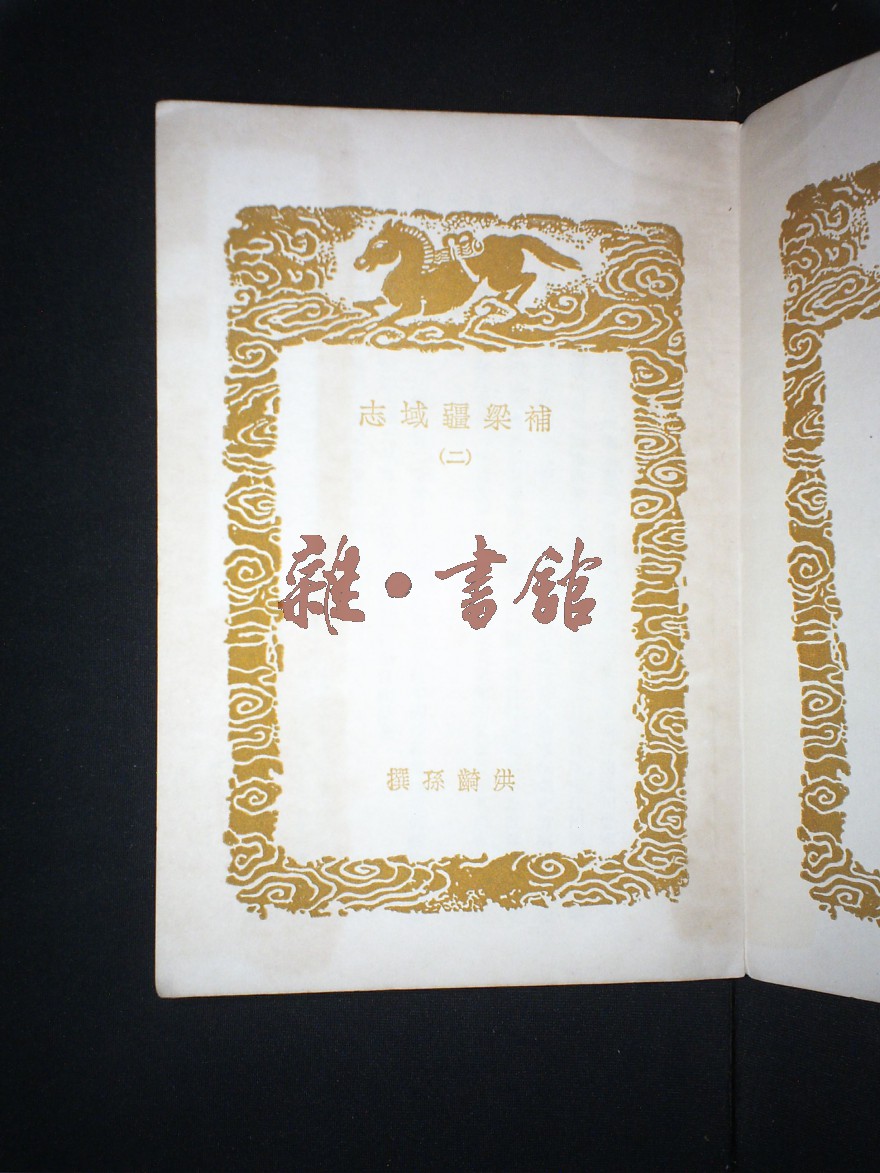 補梁疆域志
(二)
雜·書館
洪齮孫撰